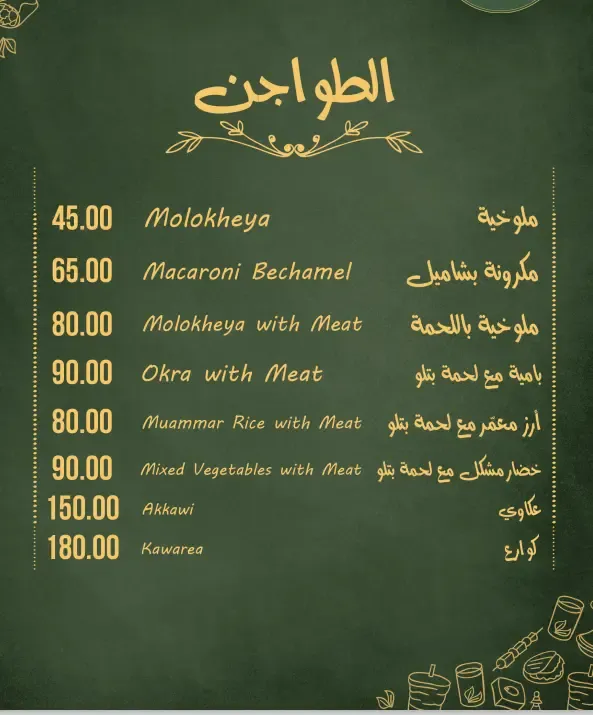 الطواجن
45.00 Molokheya ملوخية
65.00 Macaroni Bechamel مكرونة بشاميل
80.00 Molokheya with Meat ملوخية باللحمة
90.00 Okra with Meat بامية مع لحمة بتلو
80.00 Muammar Rice with Meat أرز معمّر مع لحمة بتلو
90.00 Mixed Vegetables with Meat خضار مشكل مع لحمة بتلو
150.00 Akkawi عكاوي
180.00 Kawarea كوارع